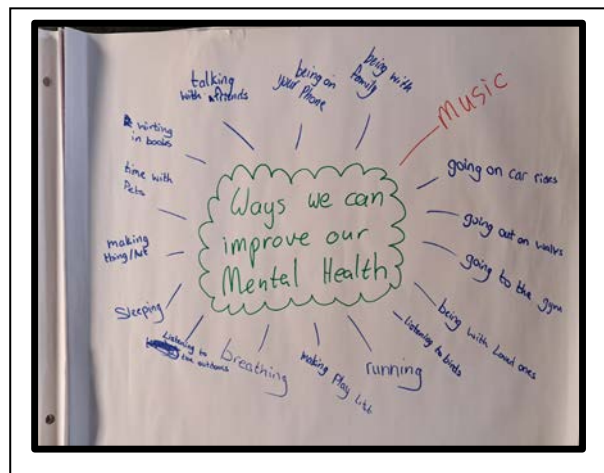 Ways we can
improve our
Mental Health
talking
with friends
being on
your Phone
being with
family
Music
going on car rides
going out on walks
going to the gym
being with Loved ones
listening to birds
running
making Play List
breathing
Listening to
the outdoors
Sleeping
making
thing/Art
time with
Pets
wirting
in books